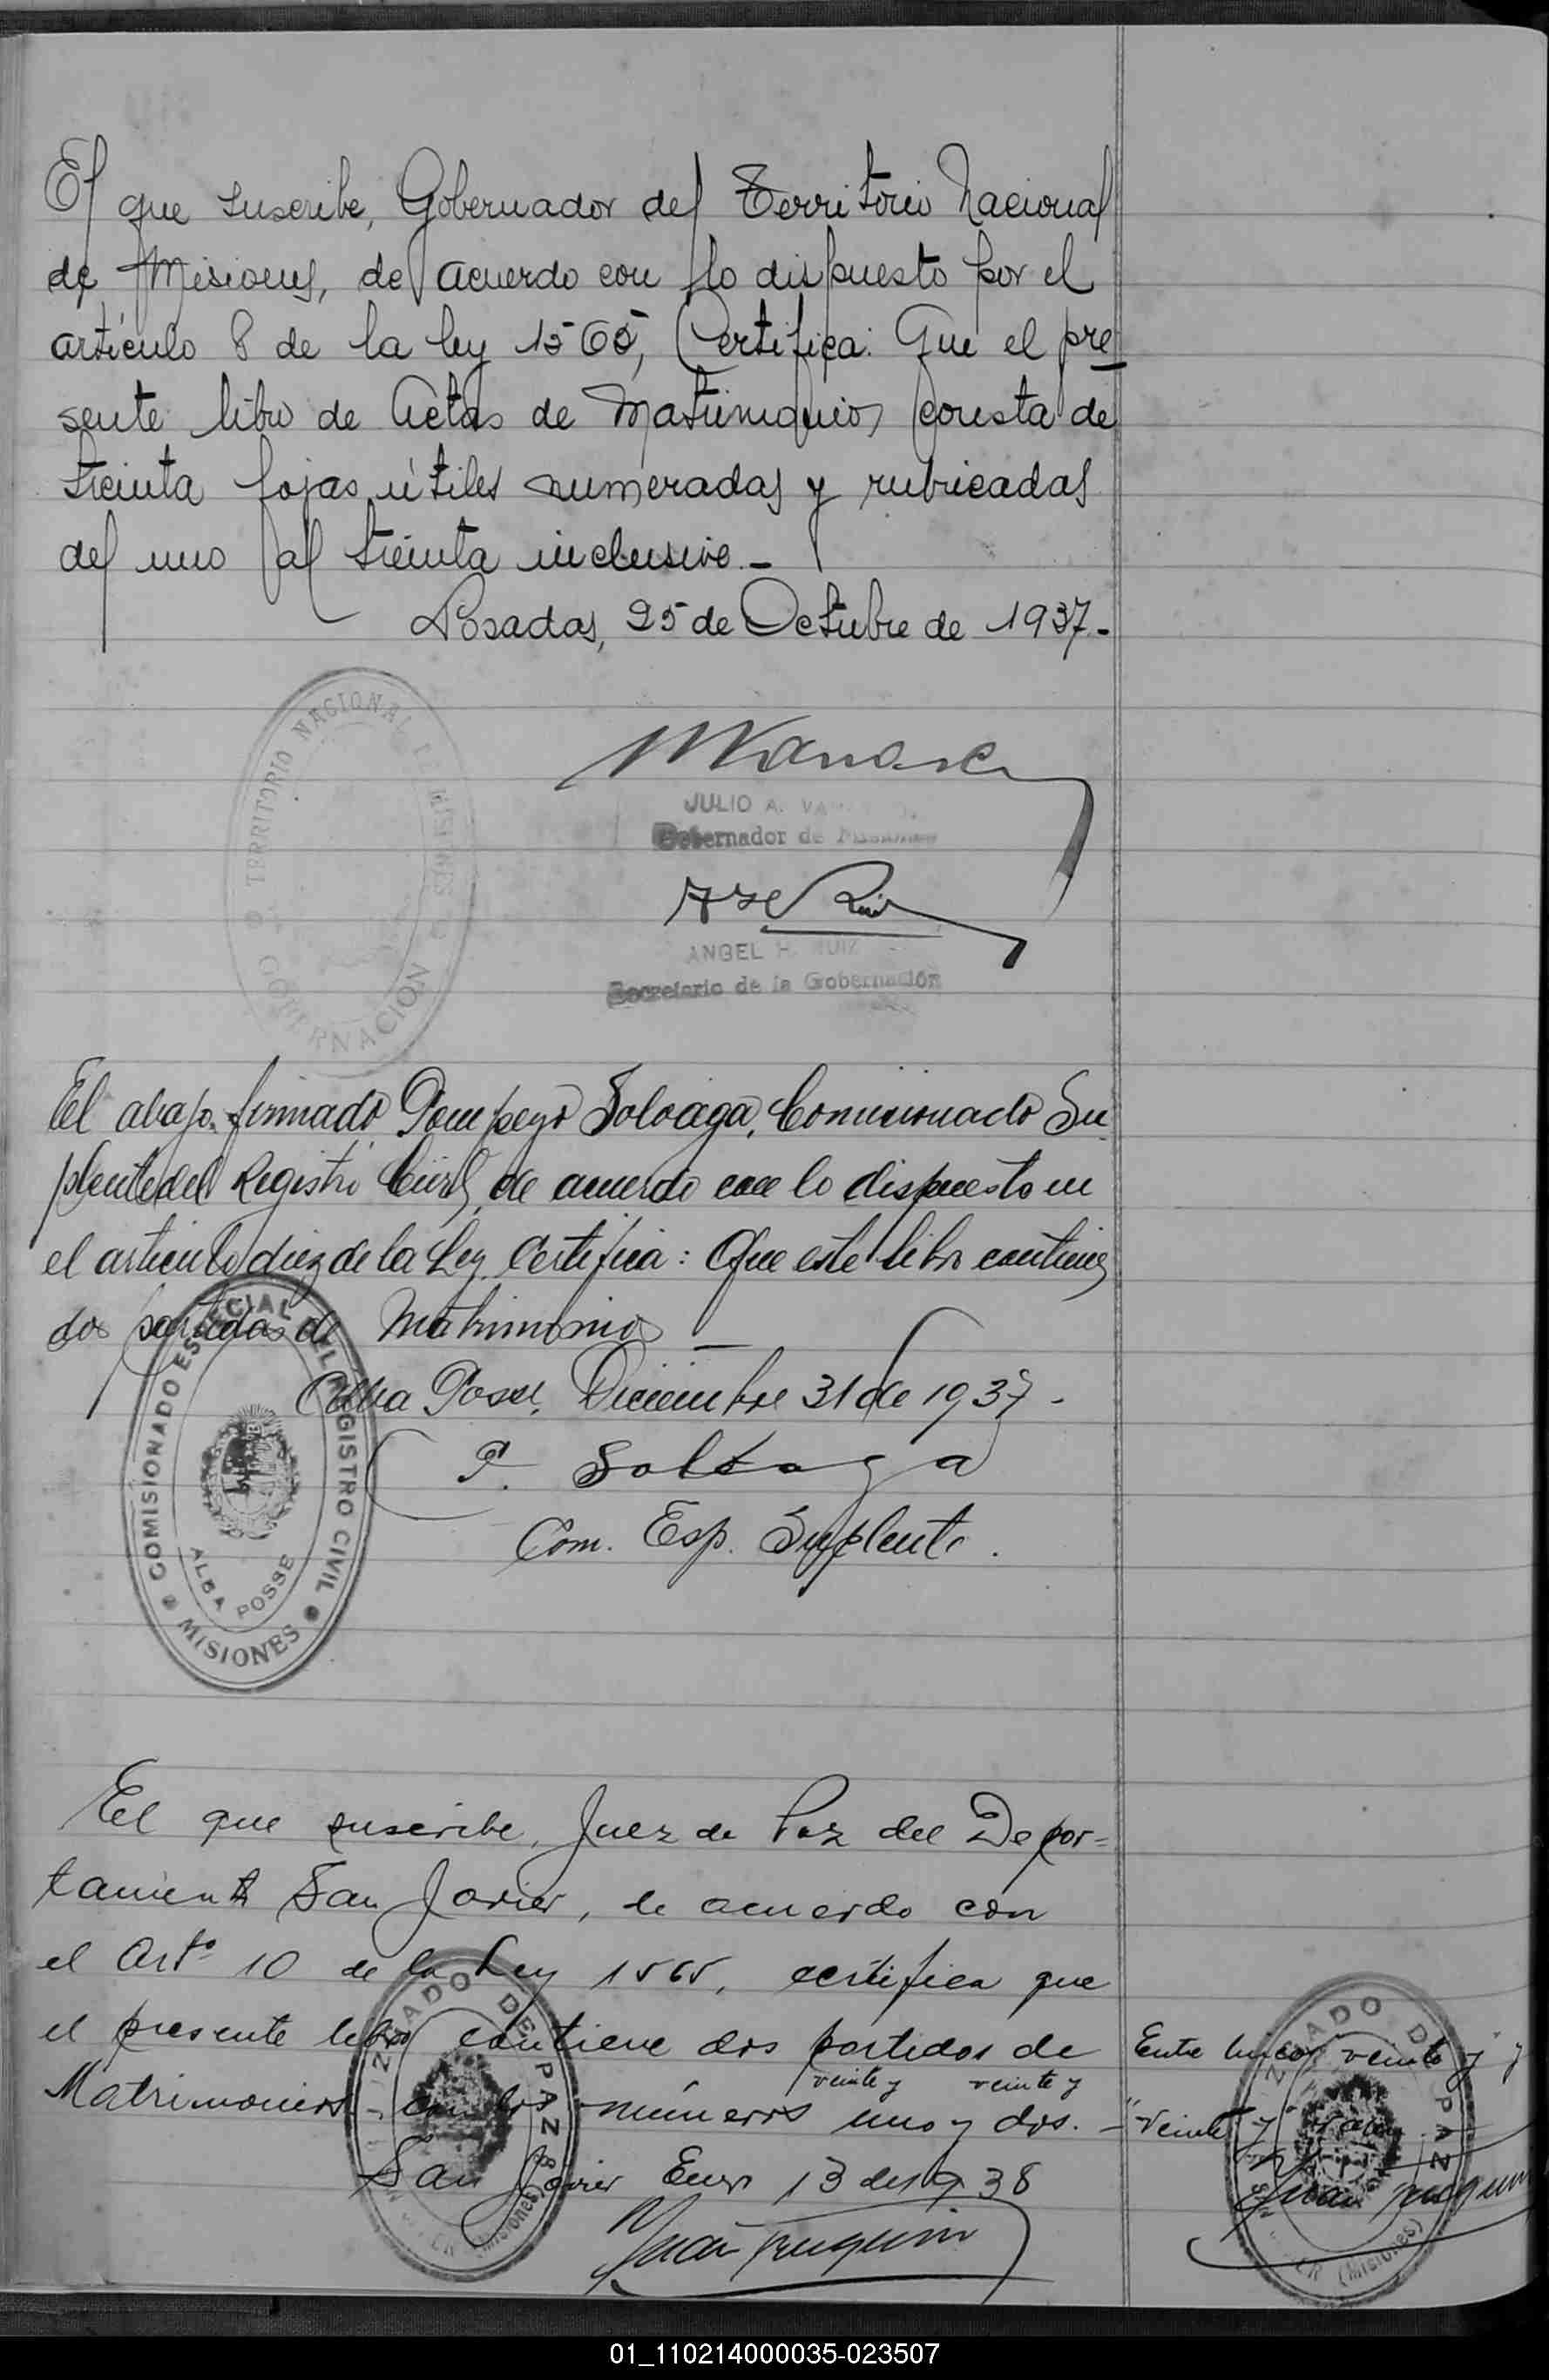 El que suscribe, Gobernador del Territorio Nacional
de Misiones, de acuerdo con lo dispuesto por el
artículo 8 de la ley 1565, Certifica: Que el pre
sente libro de Actas de Matrimonios consta de
treinta fojas útiles numeradas y rubricadas
del uno al treinta inclusive.-
Posadas, 25 de Octubre de 1937.-
GOBERNACION TERRITORIO NACIONAL DE MISIONES
JULIO A. VA
Gobernador de Misiones
ANGEL H. RUIZ
Secretario de la Gobernación
El abajo firmado Pompeyo Soloaga, Comisionado Su
plente del Registro Civil, de acuerdo con lo dispuesto en
el articulo diez de la Ley Certifica: Que este libro contiene
dos partidas de Matrimonios —
Alba Posse, Diciembre 31 de 1937 -
P. Soloaga
Com. Esp. Suplente.
COMISIONADO ESPECIAL DEL REGISTRO CIVIL
ALBA POSSE
MISIONES
El que suscribe, Juez de Paz del Depar=
tamento San Javier, de acuerdo con
el Art° 10 de la Ley 1565, certifica que
el presente libro contiene dos partidas de
veinte y veinte y
Matrimonios con los números uno y dos. -
San Javier Enero 13 de 1938
JUZGADO DE PAZ
(Misiones)
Entre lineas veinte y
"veinte y
Juan
JUZGADO DE PAZ
(Misiones)
01_110214000035-023507